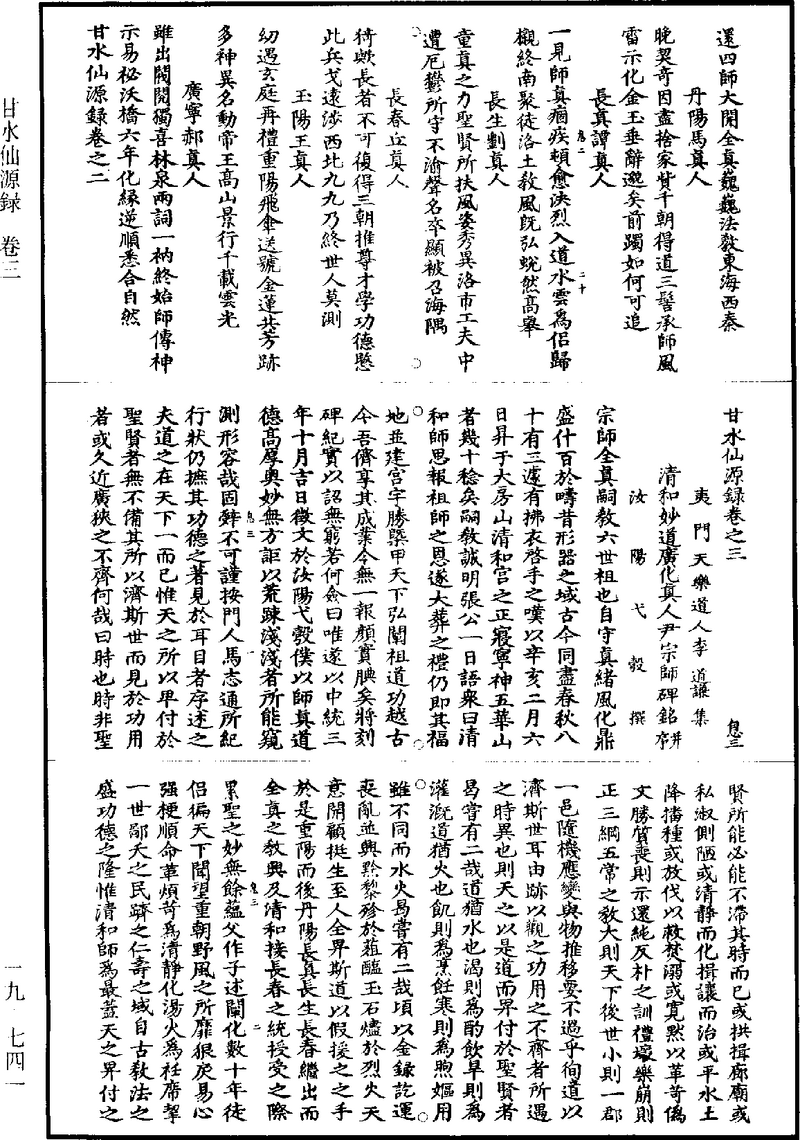 還四師大闡全真巍巍法教東海西秦
丹陽馬真人
晚契奇因盡捨家貲千朝得道三髻承師風
雷示化金玉垂辭邈矣前躅如何可追
長真譚真人
一見師真痼疾頼愈決烈入道水雲為侶歸
觀終南聚徒洛土教風既弘蛻然高舉
長生劉真人
童真之力聖賢所扶風姿秀異洛市工夫中
遭厄鬱所守不渝聲名卒顯被召海隅
長春丘真人
猗歟長者不可復得三朝推尊才學功德愍
此兵戈遠涉西北九九乃終世人莫測
玉陽王真人
幼遇玄庭再禮重陽飛傘送號金蓮共芳跡
多神異名動帝王高山景行千載雲光
廣寧郝真人
雖出閥閱獨喜林泉兩詞一衲終始師傳神
示易祕沃橋六年化緣逆順悉合自然
甘水仙源錄卷之二
甘水仙源錄卷之三
息三
夷門天樂道人李道謙集
清和妙道廣化真人尹宗師碑銘并序
汝陽弋彀撰
宗師全真嗣教六世祖也自守真緒風化鼎
盛什百於疇昔形器之域古今同盡春秋八
十有三遽有拂衣啓手之嘆以辛亥二月六
日昇于大房山清和宮之正寢寧神五華山
者幾十稔矣嗣教誠明張公一日語衆曰清
和師思報祖師之恩遂大葬之禮仍即其福
地並建宮宇勝槩甲天下弘闡祖道功越古
今吾儕享其成業今無一報顏實腆矣將刻
碑紀實以詔無窮若何僉曰唯遂以中統三
年十月吉日徵文於汝陽弋彀僕以師真道
德高厚奧妙無方詎以荒疎淺淺者所能窺
測形容哉固辭不可謹按門人馬志通所紀
行狀仍摭其功德之著見於耳目者序述之
夫道之在天下一而已惟天之所以畀付於
聖賢者無不備其所以濟斯世而見於功用
者或久近廣狹之不齊何哉曰時也時非聖
賢所能必能不滯其時而已或拱揖廊廟或
私淑側陋或清靜而化揖讓而治或平水土
降播種或放伐以救焚溺或寬然以革苛僞
文勝質喪則示還純反朴之訓禮壞樂崩則
正三綱五常之教大則天下後世小則一郡
一邑隨機應變與物推移要不過乎徇道以
濟斯世耳由跡以觀之功用之不齊者所遇
之時異也則天之以是道而畀付於聖賢者
曷嘗有二哉道猶水也渴則為酌飲旱則為
灌溉道猶火也飢則為烹飪寒則為煦嫗用
雖不同而水火曷嘗有二哉頃以金錄訖運
喪亂並興黔黎殄於菹醢玉石燼於烈火天
意開顧挺生至人全畀斯道以假援之之手
於是重陽而後丹陽長真長生長春繼出而
全真之教興及清和接長春之統授受之際
累聖之妙無餘蘊父作子述闡化數十年徒
侶徧天下聞望重朝野風之所靡狠戾易心
強梗順命革煩苛為清靜化湯火為衽席挈
一世鄙夭之民躋之仁壽之域自古教法之
盛功德之隆惟清和師為最蓋天之畀付之
甘水仙源録　卷三
一九·七四一